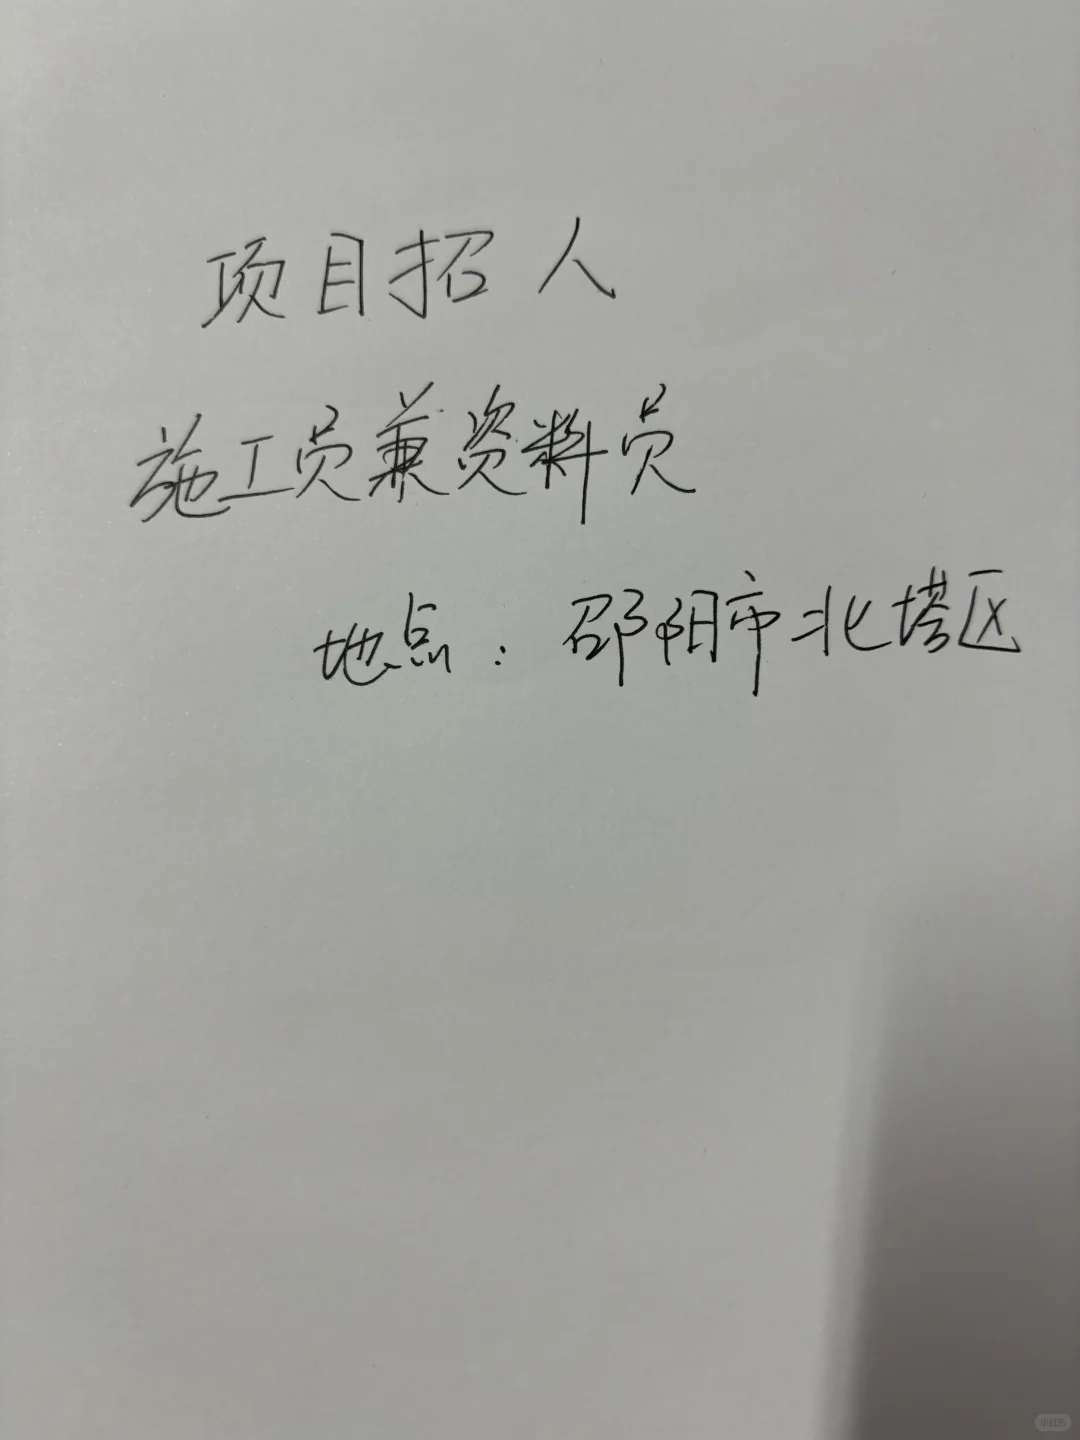 项目招人
施工员兼资料员
地点：邵阳市北塔区
小红书